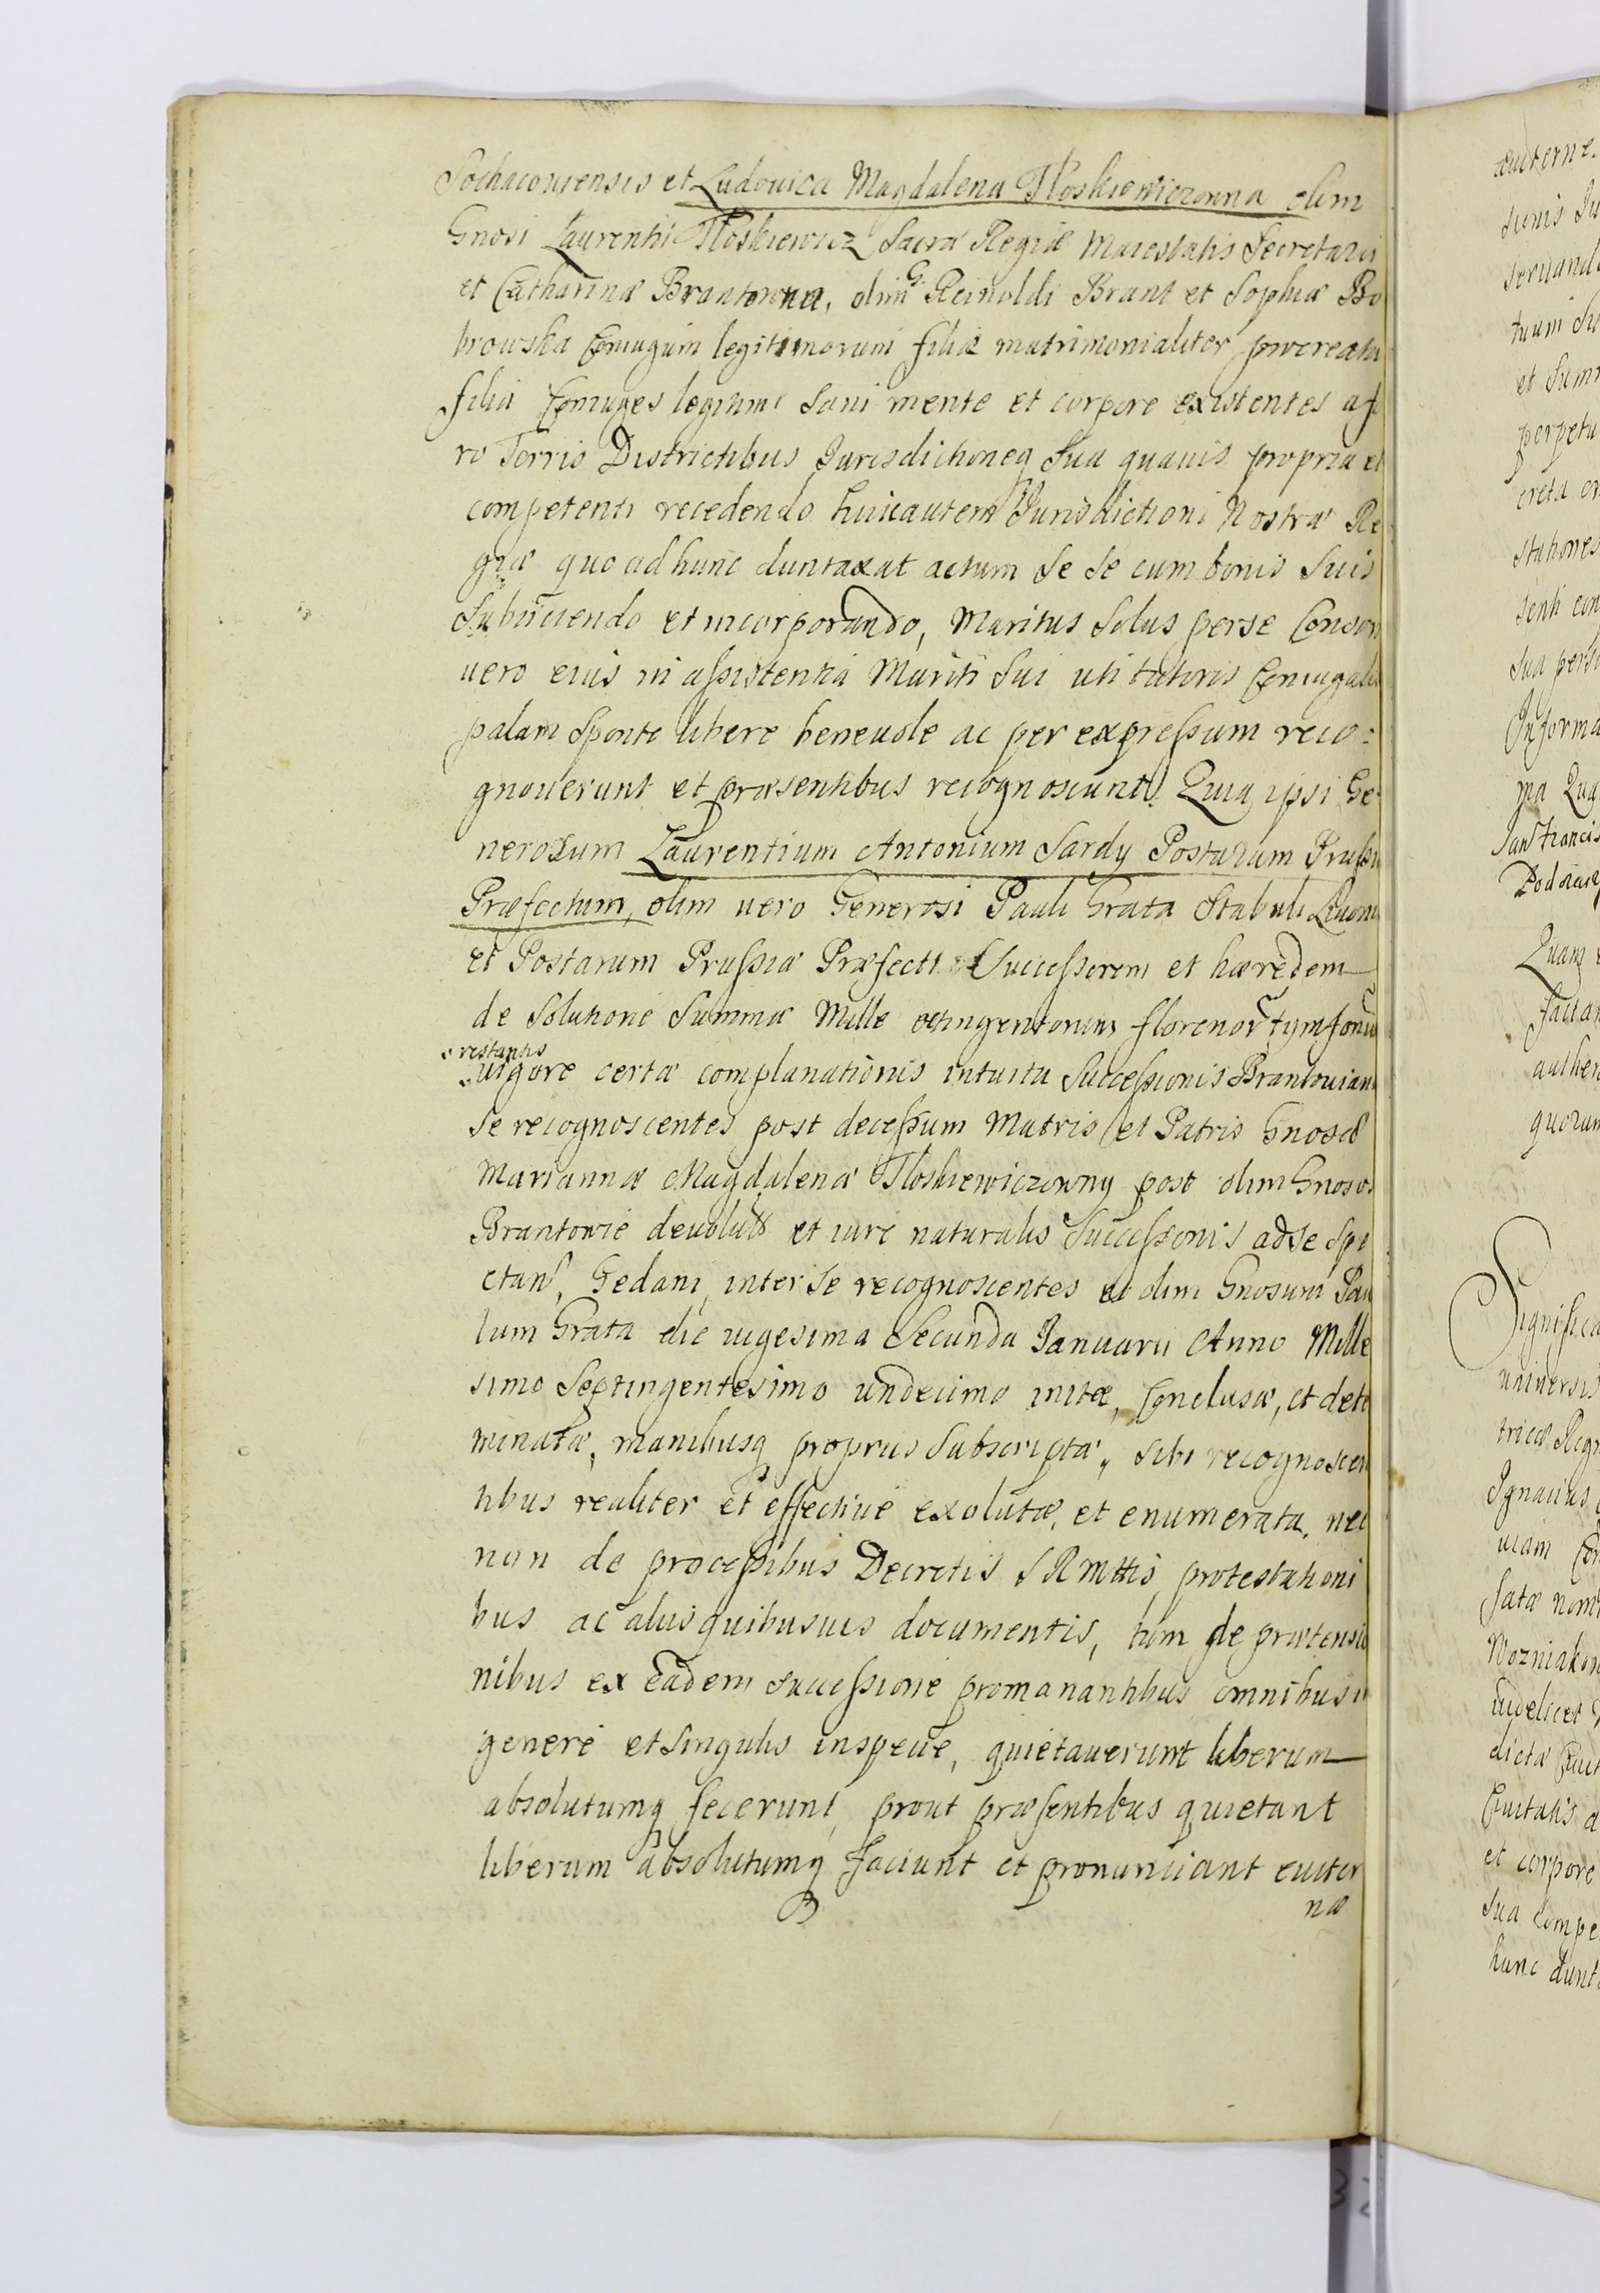 Sochacoviensis et Ludovica Magdalena Tłoskiewiczowna olim
Gnosi Laurentii Tłoskiewicz Sacræ Regiæ Maiestatis Secretarii
et Catharinæ Brantowna, olim G. Reinoldi Brant et Sophiæ Bo
browska Coniugum legitimorum filiæ matrimonialiter procreata
filia Coniuges legitimi Sani mente et corpore existentes a fo
ro Terris Districtibus Jurisdictioneq Sua quavis propria et
competenti recedendo huicautem Jurisdictioni Nostræ Re
giæ quo ad hunc duntaxat actum Se Se cum bonis Suis
Subiiciendo et incorporando, Maritus Solus perse Consors
uero eius in assistentia Mariti Sui uti tutoris Coniugalis
palam Sponte libere beneuole ac per expressum reco:
gnouerunt et præsentibus recognoscunt. Quia ipsi Ge
nerosum Laurentium Antonium Sardy Postarum Prussiæ
Præfectum, olim uero Generosi Pauli Grata Stabuli Livoni
et Postarum Prussiæ Præfecti Successorem et hæredem
de Solutione Summæ Mille octingentorum florenor tymfonu
restantis
uigore certæ complanationis intuitu Successionis Brantouianæ
Se recognoscentes post decessum Matris et Patris Gnosæ
Mariannæ Magdalenæ Tłoskiewiczowny post olim Gnosos
Brantowie deuolut et iure naturalis Successionis adse Spe
ctan, Gedani, inter Se recognoscentes et olim Gnosum Pau
lum Grata die uigesima Secunda Januarii Anno Mille
simo Septingentesimo undecimo initæ, Conclusæ, et dete
minatæ, manibusq proprius Subscriptæ, Sibi recognoscen
tibus realiter et effective exolutæ, et enumerata, nec
non de processibus Decretis S R Mttis protestationi
bus ac aliis quibusuis documentis, tum de prætensio
nibus ex eadem Successione promanantibus omnibus in
genere et Singulis inspecie, quietauerunt liberum
absolutumq fecerunt, prout præsentibus quietant
liberum absolutumq faciunt et pronunciant euiter
næ
æuiterne.
sionis Ju
seruand
tuum Su
et Sum
perpetu
creta
stationes
senti con
Sua per
Informa
ma Qua
Jan Francis
Quam
factam
authen
quorum
Significa
uniuersis
tricæ Reg
Ignatius
uiam
satæ nom
Wozniakow
uidelicet
dictæ Ciuit
Ciuitatis a
et corpore
Sua Compe
hunc dunt